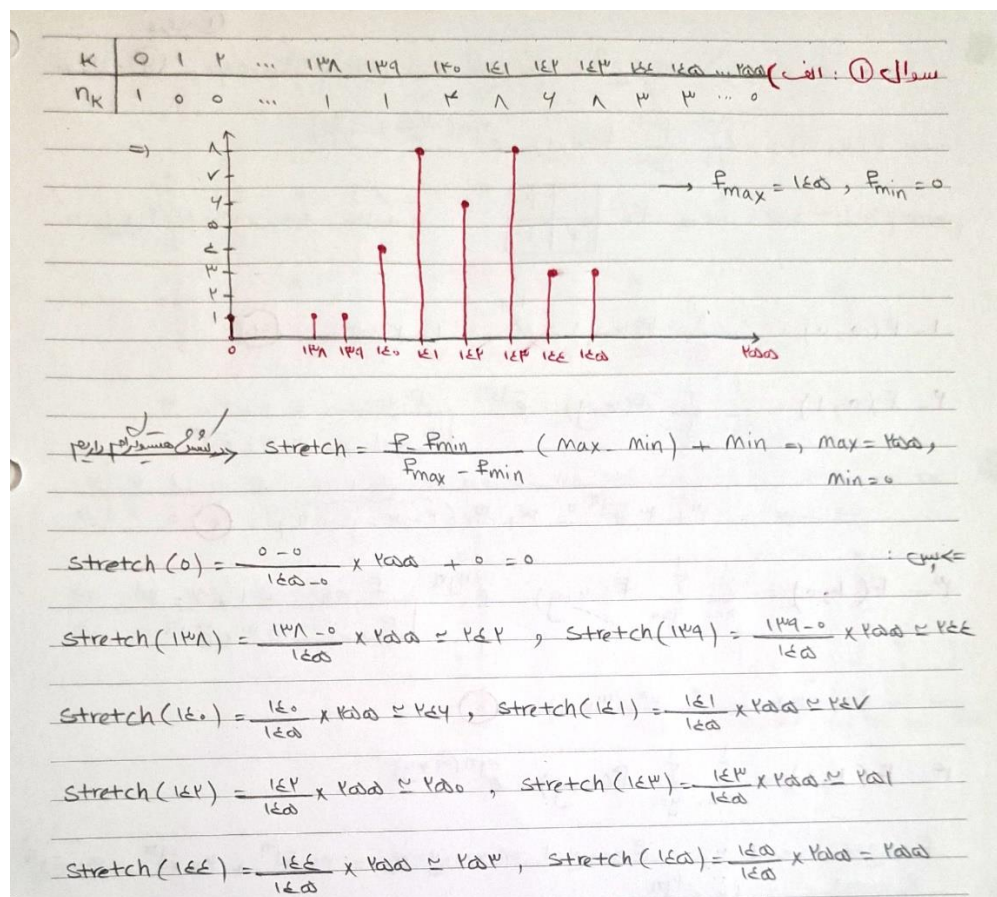 سوال ① : الف)
K 0 1 ۲ ... ۱۳۸ ۱۳۹ ۱۴۰ ۱۴۱ ۱۴۲ ۱۴۳ ۱۴۴ ۱۴۵ ... ۲۵۵
nK 1 ۰ ۰ ... ۱ ۱ ۴ ۸ ۶ ۸ ۳ ۳ ... ۰
=> ۸
۷
۶
۵
۴
۳
۲
۱
→ fmax = ۱۴۵ , fmin = ۰
۰ ۱۳۸ ۱۳۹ ۱۴۰ ۱۴۱ ۱۴۲ ۱۴۳ ۱۴۴ ۱۴۵ ۲۵۵
در کشش هیستوگرام داریم stretch = (f - fmin) / (fmax - fmin) (max - min) + min => max = ۲۵۵,
min = ۰
=> پس :
stretch (۰) = (۰ - ۰) / (۱۴۵ - ۰) × ۲۵۵ + ۰ = ۰
stretch (۱۳۸) = (۱۳۸ - ۰) / ۱۴۵ × ۲۵۵ ≃ ۲۴۲ , stretch (۱۳۹) = (۱۳۹ - ۰) / ۱۴۵ × ۲۵۵ ≃ ۲۴۴
stretch (۱۴۰) = ۱۴۰ / ۱۴۵ × ۲۵۵ ≃ ۲۴۶ , stretch (۱۴۱) = ۱۴۱ / ۱۴۵ × ۲۵۵ ≃ ۲۴۷
stretch (۱۴۲) = ۱۴۲ / ۱۴۵ × ۲۵۵ ≃ ۲۵۰ , stretch (۱۴۳) = ۱۴۳ / ۱۴۵ × ۲۵۵ ≃ ۲۵۱
stretch (۱۴۴) = ۱۴۴ / ۱۴۵ × ۲۵۵ ≃ ۲۵۳ , stretch (۱۴۵) = ۱۴۵ / ۱۴۵ × ۲۵۵ = ۲۵۵